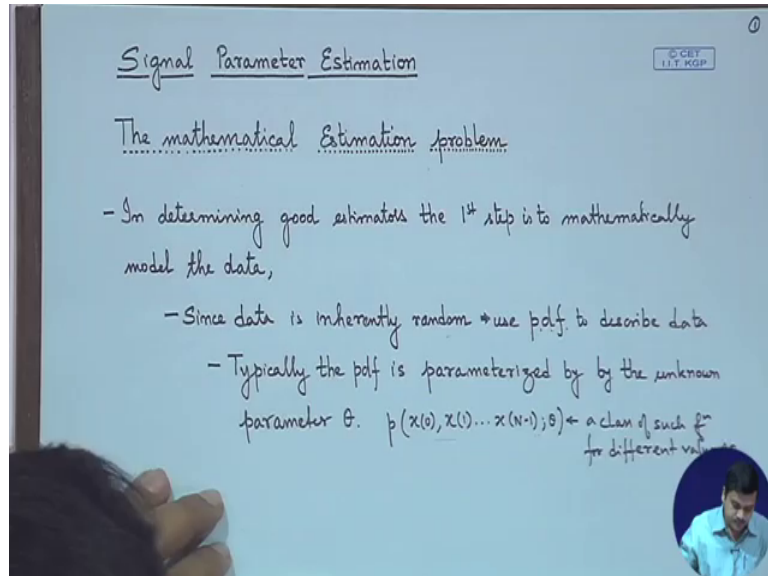 ①
Signal Parameter Estimation
© CET
I.I.T. KGP
The mathematical Estimation problem
- In determining good estimators the 1st step is to mathematically
model the data,
- Since data is inherently random → use pdf. to describe data
- Typically the pdf is parameterized by by the unknown
parameter θ. p(x(0), x(1)... x(N-1); θ) ← a class of such fⁿ
for different